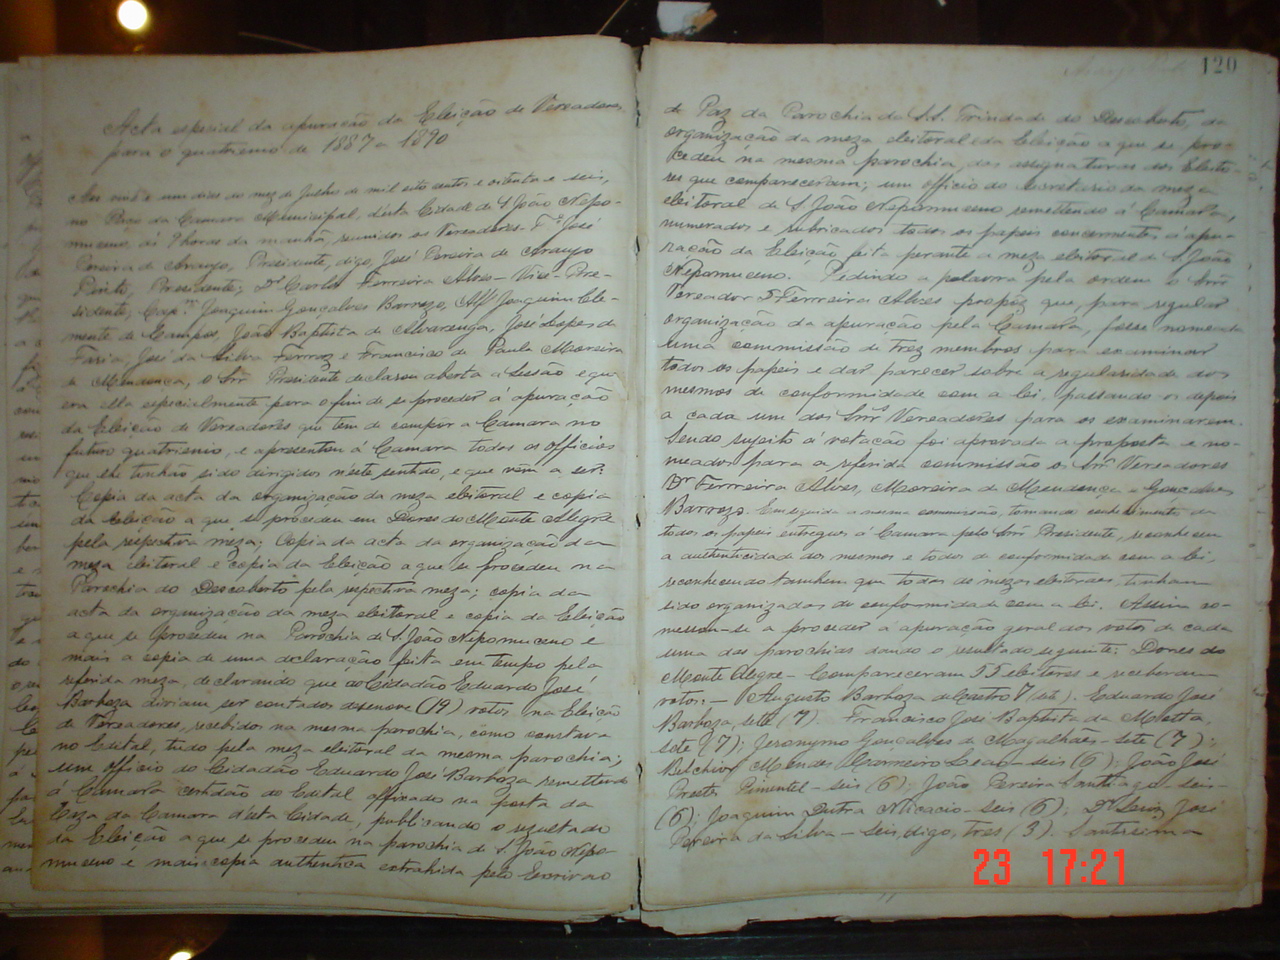 Acta especial da apuração da Eleição de Vereadores
para o quatrienio de 1887 a 1890
Aos vinte e um dias do mez de Julho de mil oito centos e oitenta e seis,
no Paço da Camara Municipal, d'esta Cidade de S. João Nepo-
muceno, ás 9 horas da manhã, reunidos os Vereadores José
Pereira de Araujo, Presidente, digo, José Pereira de Araujo
Pinto, Presidente; Dr Carlos Ferreira Alves - Vice-Pre-
sidente; Capm Joaquim Gonçalves Barrozo, Alfs Joaquim Cle-
mente de Campos, João Baptista de Alvarenga, José Lopes de
Faria, José da Silva Ferraz e Francisco de Paula Moreira
de Mendonça, o Snr Presidente declarou aberta a Sessão e que
era ella especialmente para o fim de se proceder á apuração
da Eleição de Vereadores que tem de compôr a Camara no
futuro quatrienio, e apresentou á Camara todos os officios
que lhe tinhão sido dirigidos neste sentido, e que vem a ser:
Copia da acta da organização da meza eleitoral e copia
da Eleição a que se procedeu em Dores do Monte Alegre
pela respectiva meza; copia da acta da organização da
meza eleitoral e copia da Eleição a que se procedeu na
Parochia do Descoberto pela respectiva meza; copia da
acta da organização da meza eleitoral e copia da Eleição
a que se procedeu na Parochia de S. João Nepomuceno e
mais a copia de uma declaração feita em tempo pela
referida meza, declarando que ao Cidadão Eduardo José
Barboza devião ser contados desenove (19) votos na Eleição
de Vereadores, recebidos na mesma parochia, como constava
no Edital, tudo pela meza eleitoral da mesma parochia;
um officio do Cidadão Eduardo José Barboza remettendo
á Camara certidão do Edital affixado na porta da
Caza da Camara d'esta Cidade, publicando o rezultado
da Eleição a que se procedeu na parochia de S. João Nepo-
muceno e mais copia authentica extrahida pelo Escrivão
120
de Paz da Parochia do S.S. Trindade do Descoberto, da
organização da meza eleitoral da Eleição a que se pro-
cedeu na mesma parochia, das assignaturas dos Eleito-
res que comparecerão; um officio do Secretario da meza
eleitoral de S. João Nepomuceno remettendo á Camara,
numerados e rubricados todos os papeis concernentes á apu-
ração da Eleição feita perante a meza eleitoral de S. João
Nepomuceno. Pedindo a palavra pela ordem o Snr
Vereador Ferreira Alves propoz que, para regular
organização da apuração pela Camara, fosse nomeada
uma commissão de trez membros para examinar
todos os papeis e dar parecer sobre a regularidade dos
mesmos de conformidade com a lei, passando-os depois
a cada um dos Snrs Vereadores para os examinarem.
Sendo sujeito á votação foi aprovada a proposta e no-
meados para a referida commissão os Snrs Vereadores
Dr Ferreira Alves, Moreira de Mendonça e Gonçalves
Barrozo. Em seguida a mesma commissão, tomando conhecimento de
todos os papeis entregues á Camara pelo Snr Presidente, reconheceu
a authenticidade dos mesmos e todos de conformidade com a lei,
reconhecendo tambem que todas as mezas eleitoraes, tinham
sido organizadas de conformidade com a lei. Assim co-
messou-se a proceder á apuração geral dos votos de cada
uma das parochias dando o resultado seguinte: Dores do
Monte Alegre - Compareceram 55 eleitores e receberam
votos: - Augusto Barboza de Castro 7 (sete). Eduardo José
Barboza, sete (7). Francisco José Baptista da Motta,
sete (7); Jeronymo Gonçalves de Magalhães - sete (7);
Belchior Mendes Carneiro Leão - seis (6); João José
Preste Pimentel - seis (6); João Pereira Santiago - seis -
(6); Joaquim Dutra Nicacio - seis (6); Dr Luiz José
Pereira da Silva - seis, digo, tres (3). Santissima
23 17:21